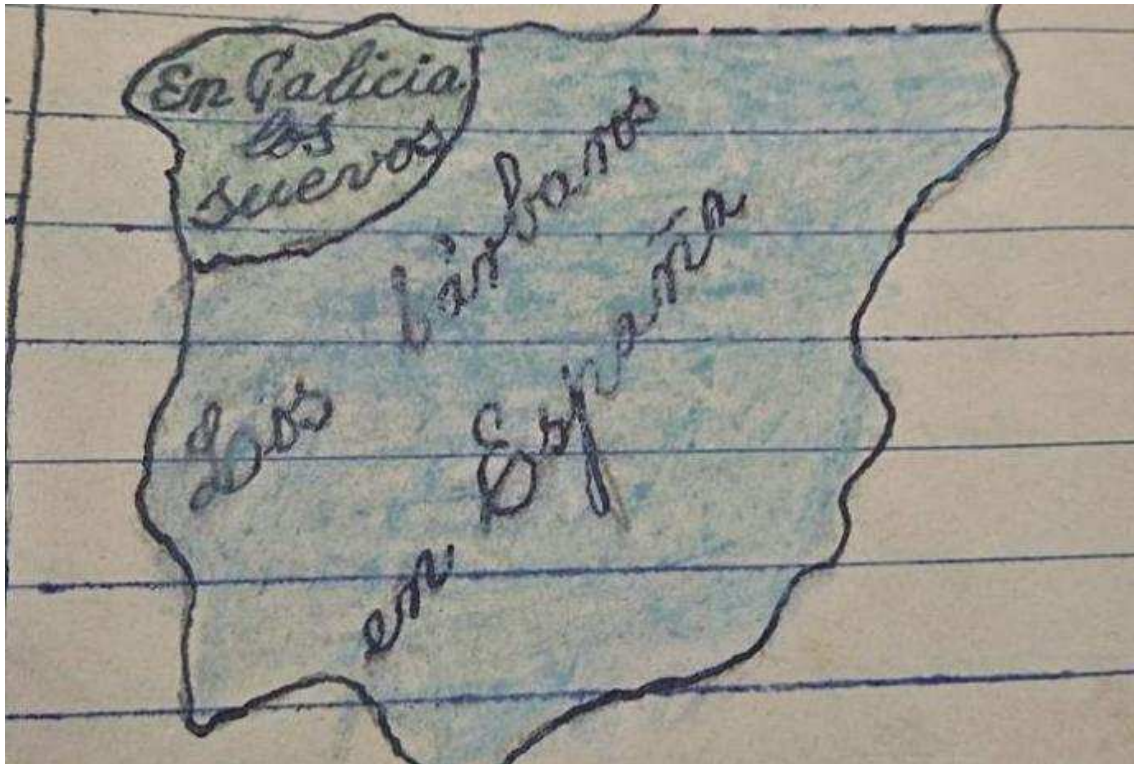 En Galicia
los
suevos
Los bárbaros
en España